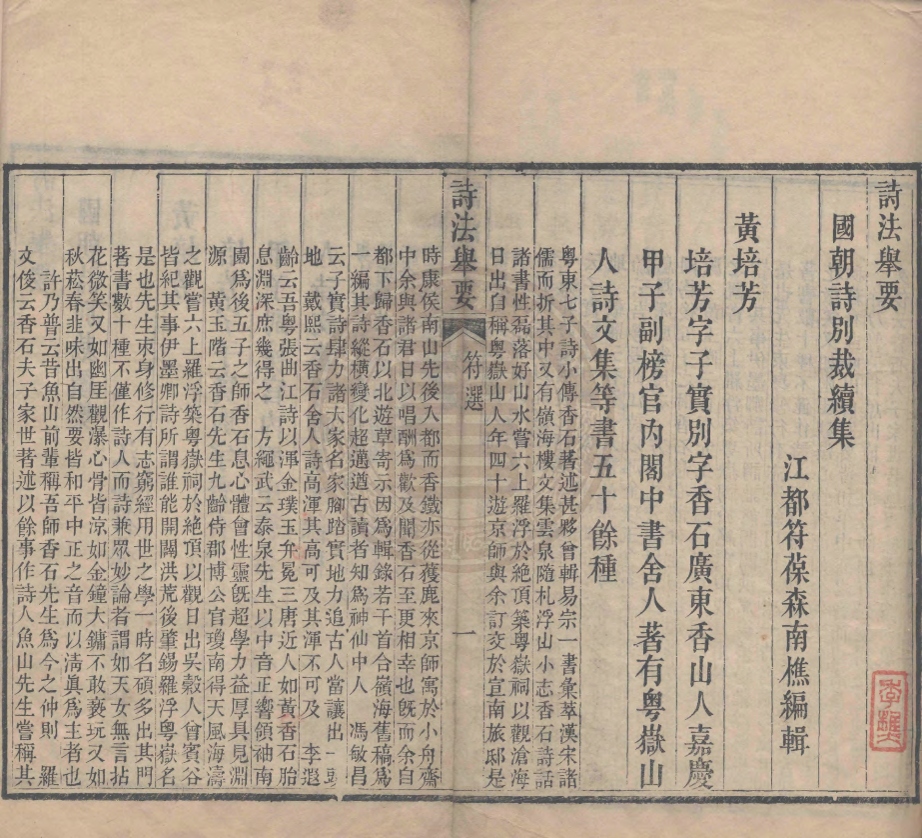 詩法舉要
國朝詩別裁續集
江都符葆森南樵編輯
黃培芳
培芳字子實別字香石廣東香山人嘉慶
甲子副榜官內閣中書舍人著有粵嶽山
人詩文集等書五十餘種
粵東七子詩小傳香石著述甚夥曾輯易宗一書彙萃漢宋諸
儒而折其中又有嶺海樓文集雲泉隨札浮山小志香石詩話
諸書性磊落好山水嘗六上羅浮於絕頂築粵嶽祠以觀滄海
日出自稱粵嶽山人年四十遊京師與余訂交於宣南旅邸是
詩法舉要
符選
一
時康侯南山先後入都而香鐵亦從獲鹿來京師寓於小舟齋
中余與諸君日以唱酬為歡及聞香石至更相幸也旣而余自
都下歸香石以北遊草寄示因為輯錄若干首合嶺海舊稿為
一編其詩縱橫變化超邁遒古讀者知為神仙中人 馮敏昌
云子實詩肆力諸大家名家腳踏實地力追古人當讓出一頭
地 戴熙云香石舍人詩高渾其高可及其渾不可及 李遐
齡云吾粵張曲江詩以渾金璞玉弁冕三唐近人如黃香石胎
息淵深庶幾得之 方繩武云泰泉先生以中音正響領袖南
園為後五子之師香石息心體會性靈旣超學力益厚具見淵
源 黃玉階云香石先生九齡侍郡博公官瓊南得天風海濤
之觀嘗六上羅浮築粵嶽祠於絕頂以觀日出吳穀人曾賓谷
皆紀其事伊墨卿詩所謂誰能開闢洪荒後肇錫羅浮粵嶽名
是也先生束身修行有志窮經用世之學一時名碩多出其門
著書數十種不僅作詩人而詩兼眾妙論者謂如天女無言拈
花微笑又如幽厓觀瀑心骨皆涼如金鐘大鏞不敢褻玩又如
秋菘春韭味出自然要皆和平中正之音而以清眞為主者也
許乃普云昔魚山前輩稱吾師香石先生為今之仲則 羅
文俊云香石夫子家世著述以餘事作詩人魚山先生嘗稱其